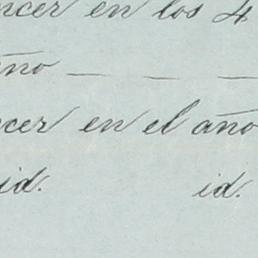 ncer en los 4
ño
cer en el año
id. id.